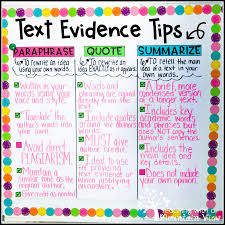 Text Evidence Tips
PARAPHRASE
QUOTE
SUMMARIZE
To rewrite an idea
using your own words.
To rewrite an
idea EXACTLY as it appears.
To retell the main
idea of a text in your
own words.
Written in your
words with your
voice and style.
Translate the
author's words
into your
own.
Avoid direct
PLAGIARISM.
Maintain a
similar tone as
the original author.
Give credit as needed.
Words and
phrases are
copied directly
from the
text.
MUST give
author credit.
Ideal to use
for providing
evidence
or when
justifying
A brief, more
condensed version
of a longer text.
Includes key
academic words and
phrases but does
NOT copy the
author's sentences.
Includes the
main idea and
key details.
Does not include
your own opinion.